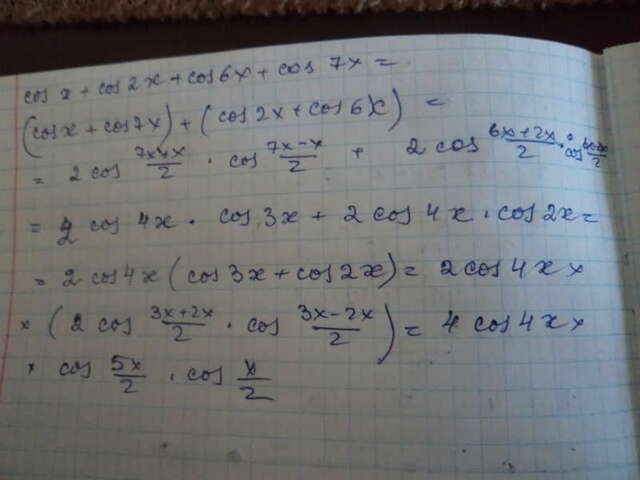 cos x + cos 2x + cos 6x + cos 7x =
(cos x + cos 7x) + (cos 2x + cos 6x) =
= 2 cos \frac{7x+x}{2} · cos \frac{7x-x}{2} + 2 cos \frac{6x+2x}{2} · cos \frac{6x-2x}{2}
= 2 cos 4x · cos 3x + 2 cos 4x · cos 2x =
= 2 cos 4x (cos 3x + cos 2x) = 2 cos 4x ×
× (2 cos \frac{3x+2x}{2} · cos \frac{3x-2x}{2}) = 4 cos 4x ×
× cos \frac{5x}{2} · cos \frac{x}{2}